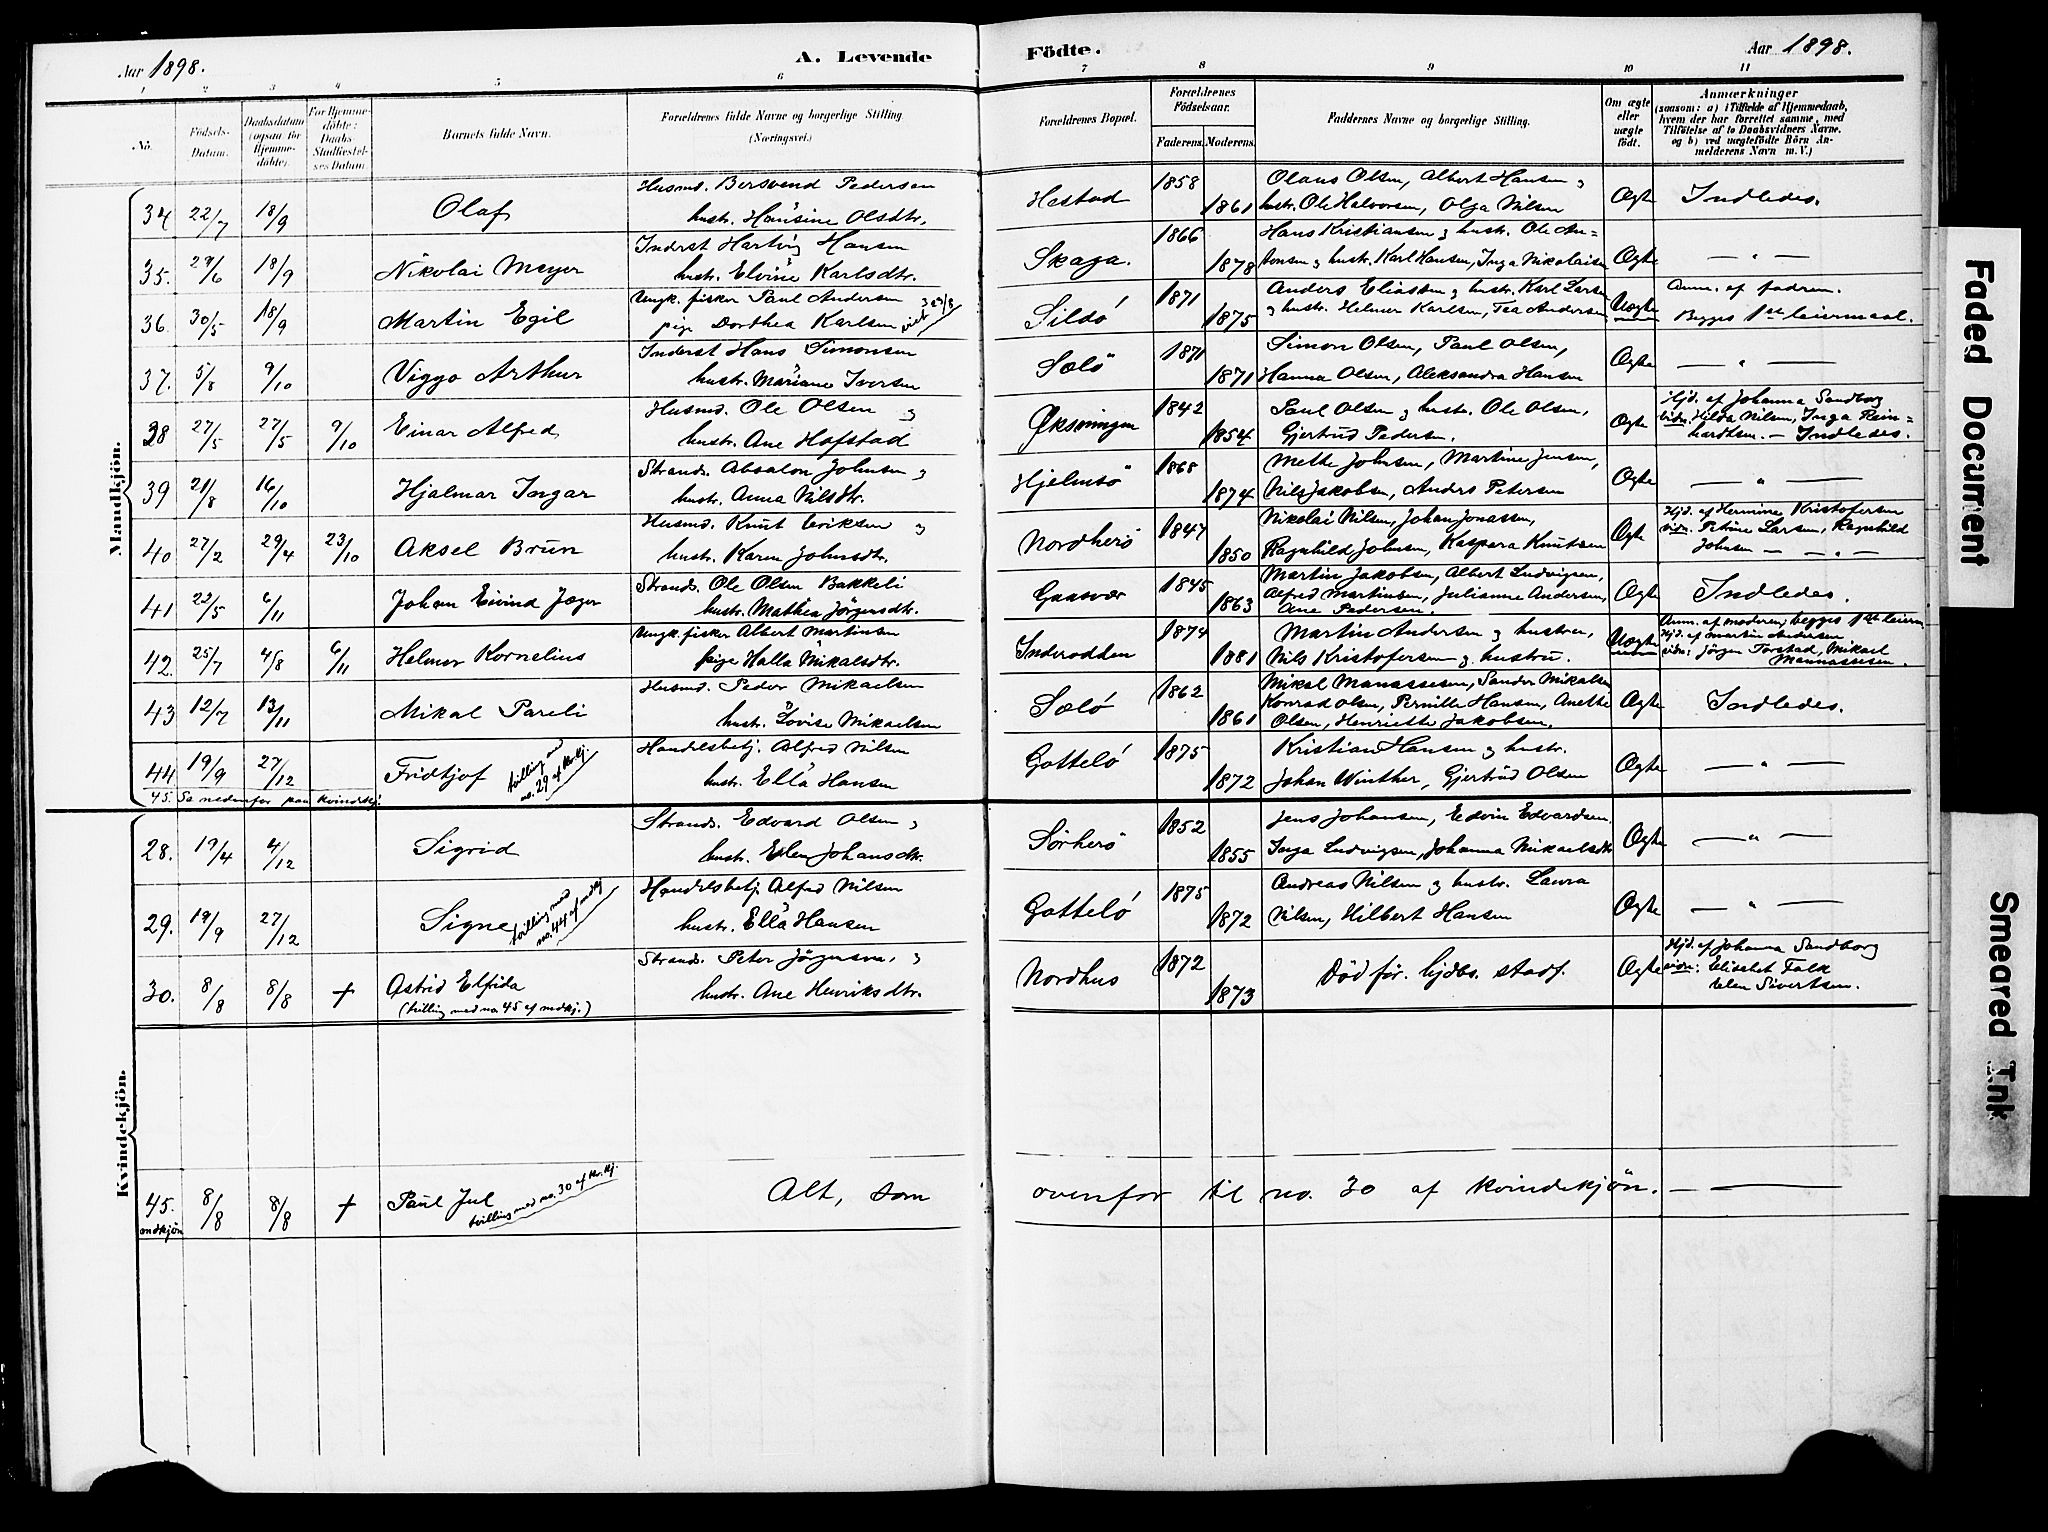 Aar 1898.
A. Levende
Födte.
Aar 1898.
1 2 3 4 5 6 7 8 9 10 11
No.
Födsels-
Datum.
Daabsdatum
(ogsaa for
Hjemme-
döbte).
For Hjemme-
döbte:
Daabs
Stadfæstel-
ses Datum.
Barnets fulde Navn.
Forældrenes fulde Navne og borgerlige Stilling
(Næringsvei.)
Forældrenes Bopæl.
Forældrenes
Födselsaar.
Faderens. Moderens.
Faddernes Navne og borgerlige Stilling.
Om ægte
eller
uægte
födt.
Anmærkninger
(saasom: a) i Tilfælde af Hjemmedaab,
hvem der har forrettet samme, med
Tilföielse af to Daabsvidners Navne.
og b) ved uægtefödte Börn An-
melderens Navn m. V.)
Mandkjön.
34 22/7 18/9 Olaf
Husmd. Bersvend Pedersen
hustr. Hansine Olsdtr.
Hestad 1858 1861
Olaus Olsen, Albert Hansen g
hustr. Ole Halvorsen, Olga Nilsen
Ægte Indledes.
35. 29/6 18/9 Nikolai Meyer
Inderst Hartvig Hansen
hustr. Elvine Karlsdtr.
Skaga. 1866 1878
Hans Kristiansen g hustr. Ole An-
tonsen g hustr. Karl Hansen, Inga Nikolaisen
Ægte — " —
36. 30/5 18/9 Martin Egil
Ungk. fisker Paul Andersen
pige Dorthea Karlsen
Sildö 1871 1875
Anders Eliassen g hustr. Karl Larsen
g hustr. Helmer Karlsen, Tea Andersen
Uægte
Anm. af fadren.
Begges 1ste leiermaal.
37. 5/8 9/10 Viggo Arthur
Inderst Hans Simonsen
hustr. Mariane Iversen
Sælö 1871 1871
Simon Olsen, Paul Olsen,
Hanna Olsen, Aleksandra Hansen
Ægte — " —
38 27/5 27/5 9/10 Einar Alfred
Husmd. Ole Olsen g
hustr. Ane Hofstad
Øksningen 1842 1854
Paul Olsen g hustr. Ole Olsen,
Gjertrud Pedersen.
Ægte
Hjd. af Johanna Sandborg
vidn. Hilda Nilsen, Inga Rein-
hardtsen. — Indledes.
39 21/8 16/10 Hjalmar Ingar
Strands. Absalon Johnsen g
hustr. Anna Nilsdtr.
Hjelmsö 1868 1874
Methe Johnsen, Martine Jensen,
Nils Jakobsen, Anders Petersen
Ægte — " —
40 27/2 29/4 23/10 Aksel Brun
Husmd. Knut Eriksen g
hustr. Karen Johnsdtr.
Nordherö 1847 1850
Nikolai Nilsen, Johan Jonassen,
Ragnhild Johnsen, Kaspara Knutsen
Ægte
Hjd. af Hermine Kristofersen
vidn. Petrine Larsen, Ragnhild
Johnsen — — " —
41 23/5 6/11 Johan Eivind Jæger
Strands. Ole Olsen Bakkeli
hustr. Mathea Jörgensdtr.
Gaasvær 1845 1863
Martin Jakobsen, Albert Ludvigsen,
Alfred Martinsen, Julianne Andersen,
Ane Pedersen.
Ægte Indledes.
42. 25/7 4/8 6/11 Helmer Kornelius
Ungk. fisker Albert Martinsen
pige Halla Mikalsdtr.
Inderodden 1874 1881
Martin Andersen g hustru,
Nils Kristofersen g. hustru.
Uægte
Anm. af moderen, begges 1ste leierm.
Hjd. af Martin Andersen
vidn: Jörgen Forstad, Mikael
Mannassesen.
43 12/7 13/11 Mikal Pareli
Husmd. Peder Mikaelsen
hustr. Lovise Mikaelsen
Sælö 1862 1861
Mikal Manassesen, Sander Mikalsen
Konrad Olsen, Pernille Hansen, Anethe
Olsen, Henriette Jakobsen.
Ægte Indledes.
44 19/9 27/12 Fridtjof
tvilling med
no. 29 af kv.kj.
Handelsbetj. Alfred Nilsen
hustr. Ella Hansen
Gotteló 1875 1872
Kristian Hansen g hustr.
Johan Winther, Gjertrud Olsen
Ægte — " —
45. Se nedenfor paa kvindekj.
Kvindekjön.
28. 19/4 4/12 Sigrid
Strands. Edvard Olsen g
hustr. Elen Johansdtr.
Sörherö 1852 1855
Jens Johansen, Edvin Edvardsen
Inga Ludvigsen, Johanna Mikaelsdtr
Ægte — " —
29. 19/9 27/12 Signe
tvilling med
no. 44 af mdkj
Handelsbetj. Alfred Nilsen
hustr. Ella Hansen
Gotteló 1875 1872
Andreas Nilsen g hustr. Laura
Nilsen, Hilbert Hansen
Ægte — " —
30. 8/8 8/8 + Astrid Elfrida
(tvilling med no. 45 af mdkj.)
Strands. Peter Jörgensen, g
hustr. Ane Henriksdtr.
Nordhus 1872 1873
Död för. hjdbs. stadf.
Ægte
Hjd. af Johanna Sandborg
vidn: Elisebet Falk
Elen Sivertsen.
45. mdkjön 8/8 8/8 + Paul Jul
tvilling med no. 30 af kv. kj.
Alt, som ovenfor til no. 30 af kvindekjön. — —
Faded Document
Smeared Ink